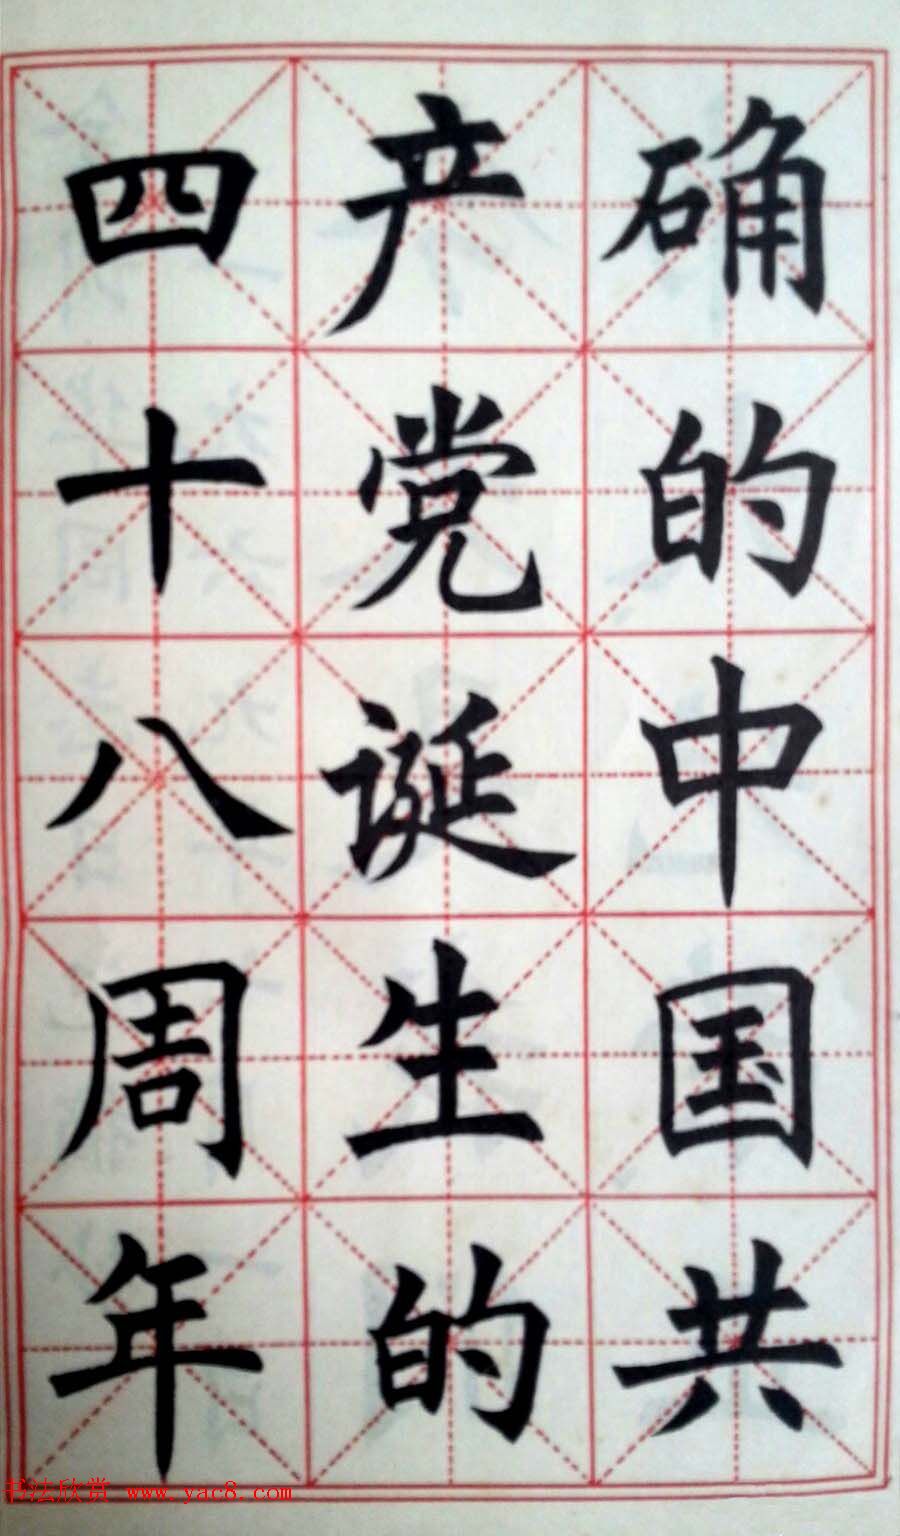 确的中国共
产党诞生的
四十八周年
书法欣赏 www.yac8.com